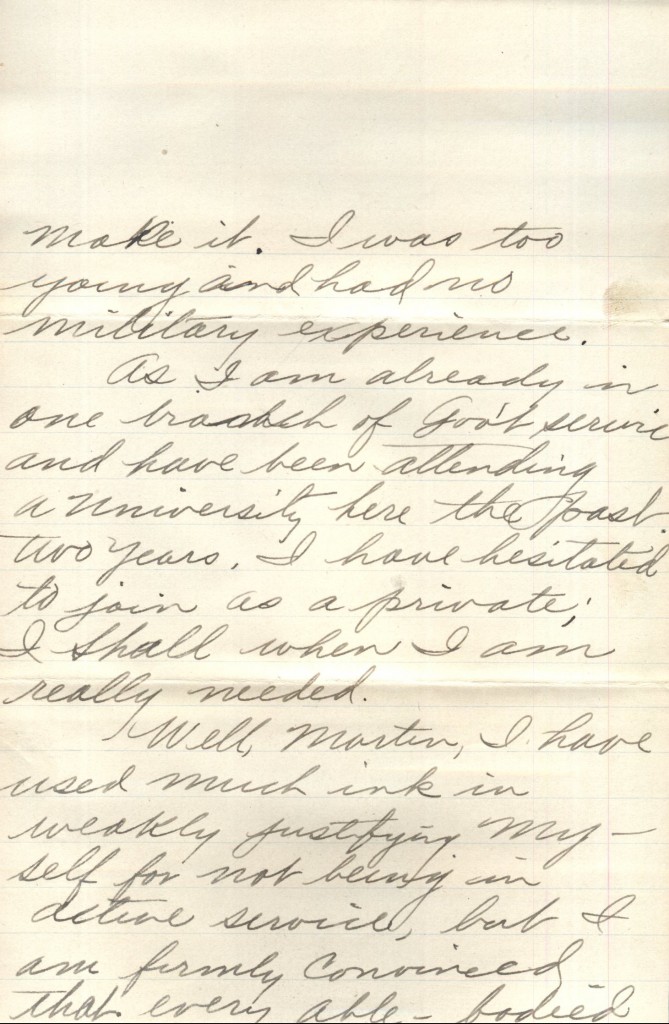 make it. I was too
young and had no
military experience.
As I am already in
one branch of Gov't servic
and have been attending
a University here the past
two years, I have hesitated
to join as a private;
I shall when I am
really needed.
Well, Martin, I have
used much ink in
weakly justifying my-
self for not being in
active service, but I
am firmly convinced
that every able-bodied